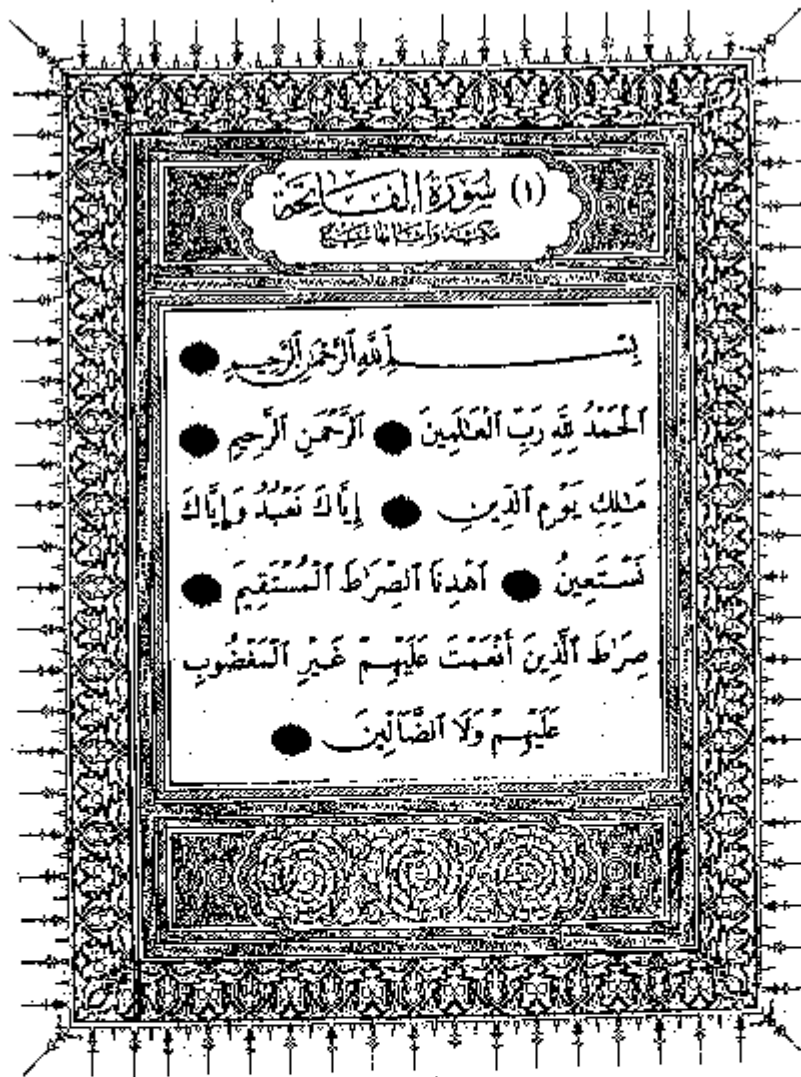 (١) سُورَةُ الْفَاتِحَةِ
مَكِّيَّة وَآيَاتُهَا سَبْعٌ
بِسْمِ اللَّهِ الرَّحْمَٰنِ الرَّحِيمِ
الْحَمْدُ لِلَّهِ رَبِّ الْعَالَمِينَ الرَّحْمَٰنِ الرَّحِيمِ
مَٰلِكِ يَوْمِ الدِّينِ إِيَّاكَ نَعْبُدُ وَإِيَّاكَ
نَسْتَعِينُ اهْدِنَا الصِّرَٰطَ الْمُسْتَقِيمَ
صِرَٰطَ الَّذِينَ أَنْعَمْتَ عَلَيْهِمْ غَيْرِ الْمَغْضُوبِ
عَلَيْهِمْ وَلَا الضَّالِّينَ